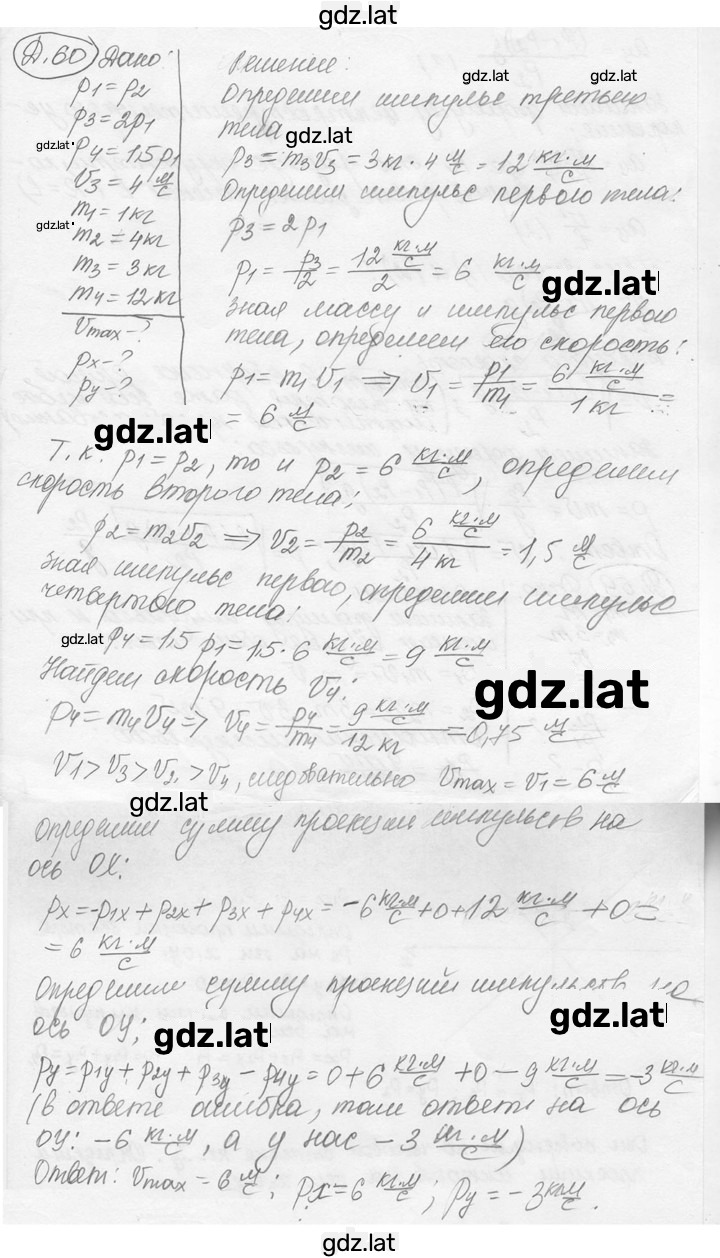 gdz.lat
Д.60 Дано:
p1 = p2
p3 = 2p1
gdz.lat
p4 = 1,5 p1
v3 = 4 м/с
m1 = 1 кг
gdz.lat
m2 = 4 кг
m3 = 3 кг
m4 = 12 кг
vmax - ?
px - ?
py - ?
Решение:
gdz.lat gdz.lat
Определим импульс третьего
тела gdz.lat
p3 = m3v3 = 3 кг · 4 м/с = 12 кг·м/с
Определим импульс первого тела:
p3 = 2 p1
p1 = p3/2 = 12 кг·м/с / 2 = 6 кг·м/с
gdz.lat
Зная массу и импульс первого
тела, определяем его скорость:
p1 = m1 v1 ⇒ v1 = p1/m1 = 6 кг·м/с / 1 кг =
= 6 м/с
gdz.lat
Т.к. p1 = p2, то и p2 = 6 кг·м/с, определим
скорость второго тела:
p2 = m2v2 ⇒ v2 = p2/m2 = 6 кг·м/с / 4 кг = 1,5 м/с
Зная импульс первого, определим импульс
четвертого тела:
gdz.lat p4 = 1,5 p1 = 1,5 · 6 кг·м/с = 9 кг·м/с
Найдем скорость v4:
gdz.lat
p4 = m4 v4 ⇒ v4 = p4/m4 = 9 кг·м/с / 12 кг = 0,75 м/с
v1 > v3 > v2 > v4, следовательно vmax = v1 = 6 м/с
gdz.lat
Определим сумму проекций импульсов на
ось OX:
px = -p1x + p2x + p3x + p4x = -6 кг·м/с + 0 + 12 кг·м/с + 0 =
= 6 кг·м/с
Определим сумму проекций импульсов на
ось OY: gdz.lat gdz.lat
py = p1y + p2y + p3y - p4y = 0 + 6 кг·м/с + 0 - 9 кг·м/с = -3 кг·м/с
(в ответе ошибка, там ответ на ось
OY: -6 кг·м/с, а у нас -3 кг·м/с)
Ответ: vmax = 6 м/с; px = 6 кг·м/с, py = -3 кг·м/с.
gdz.lat